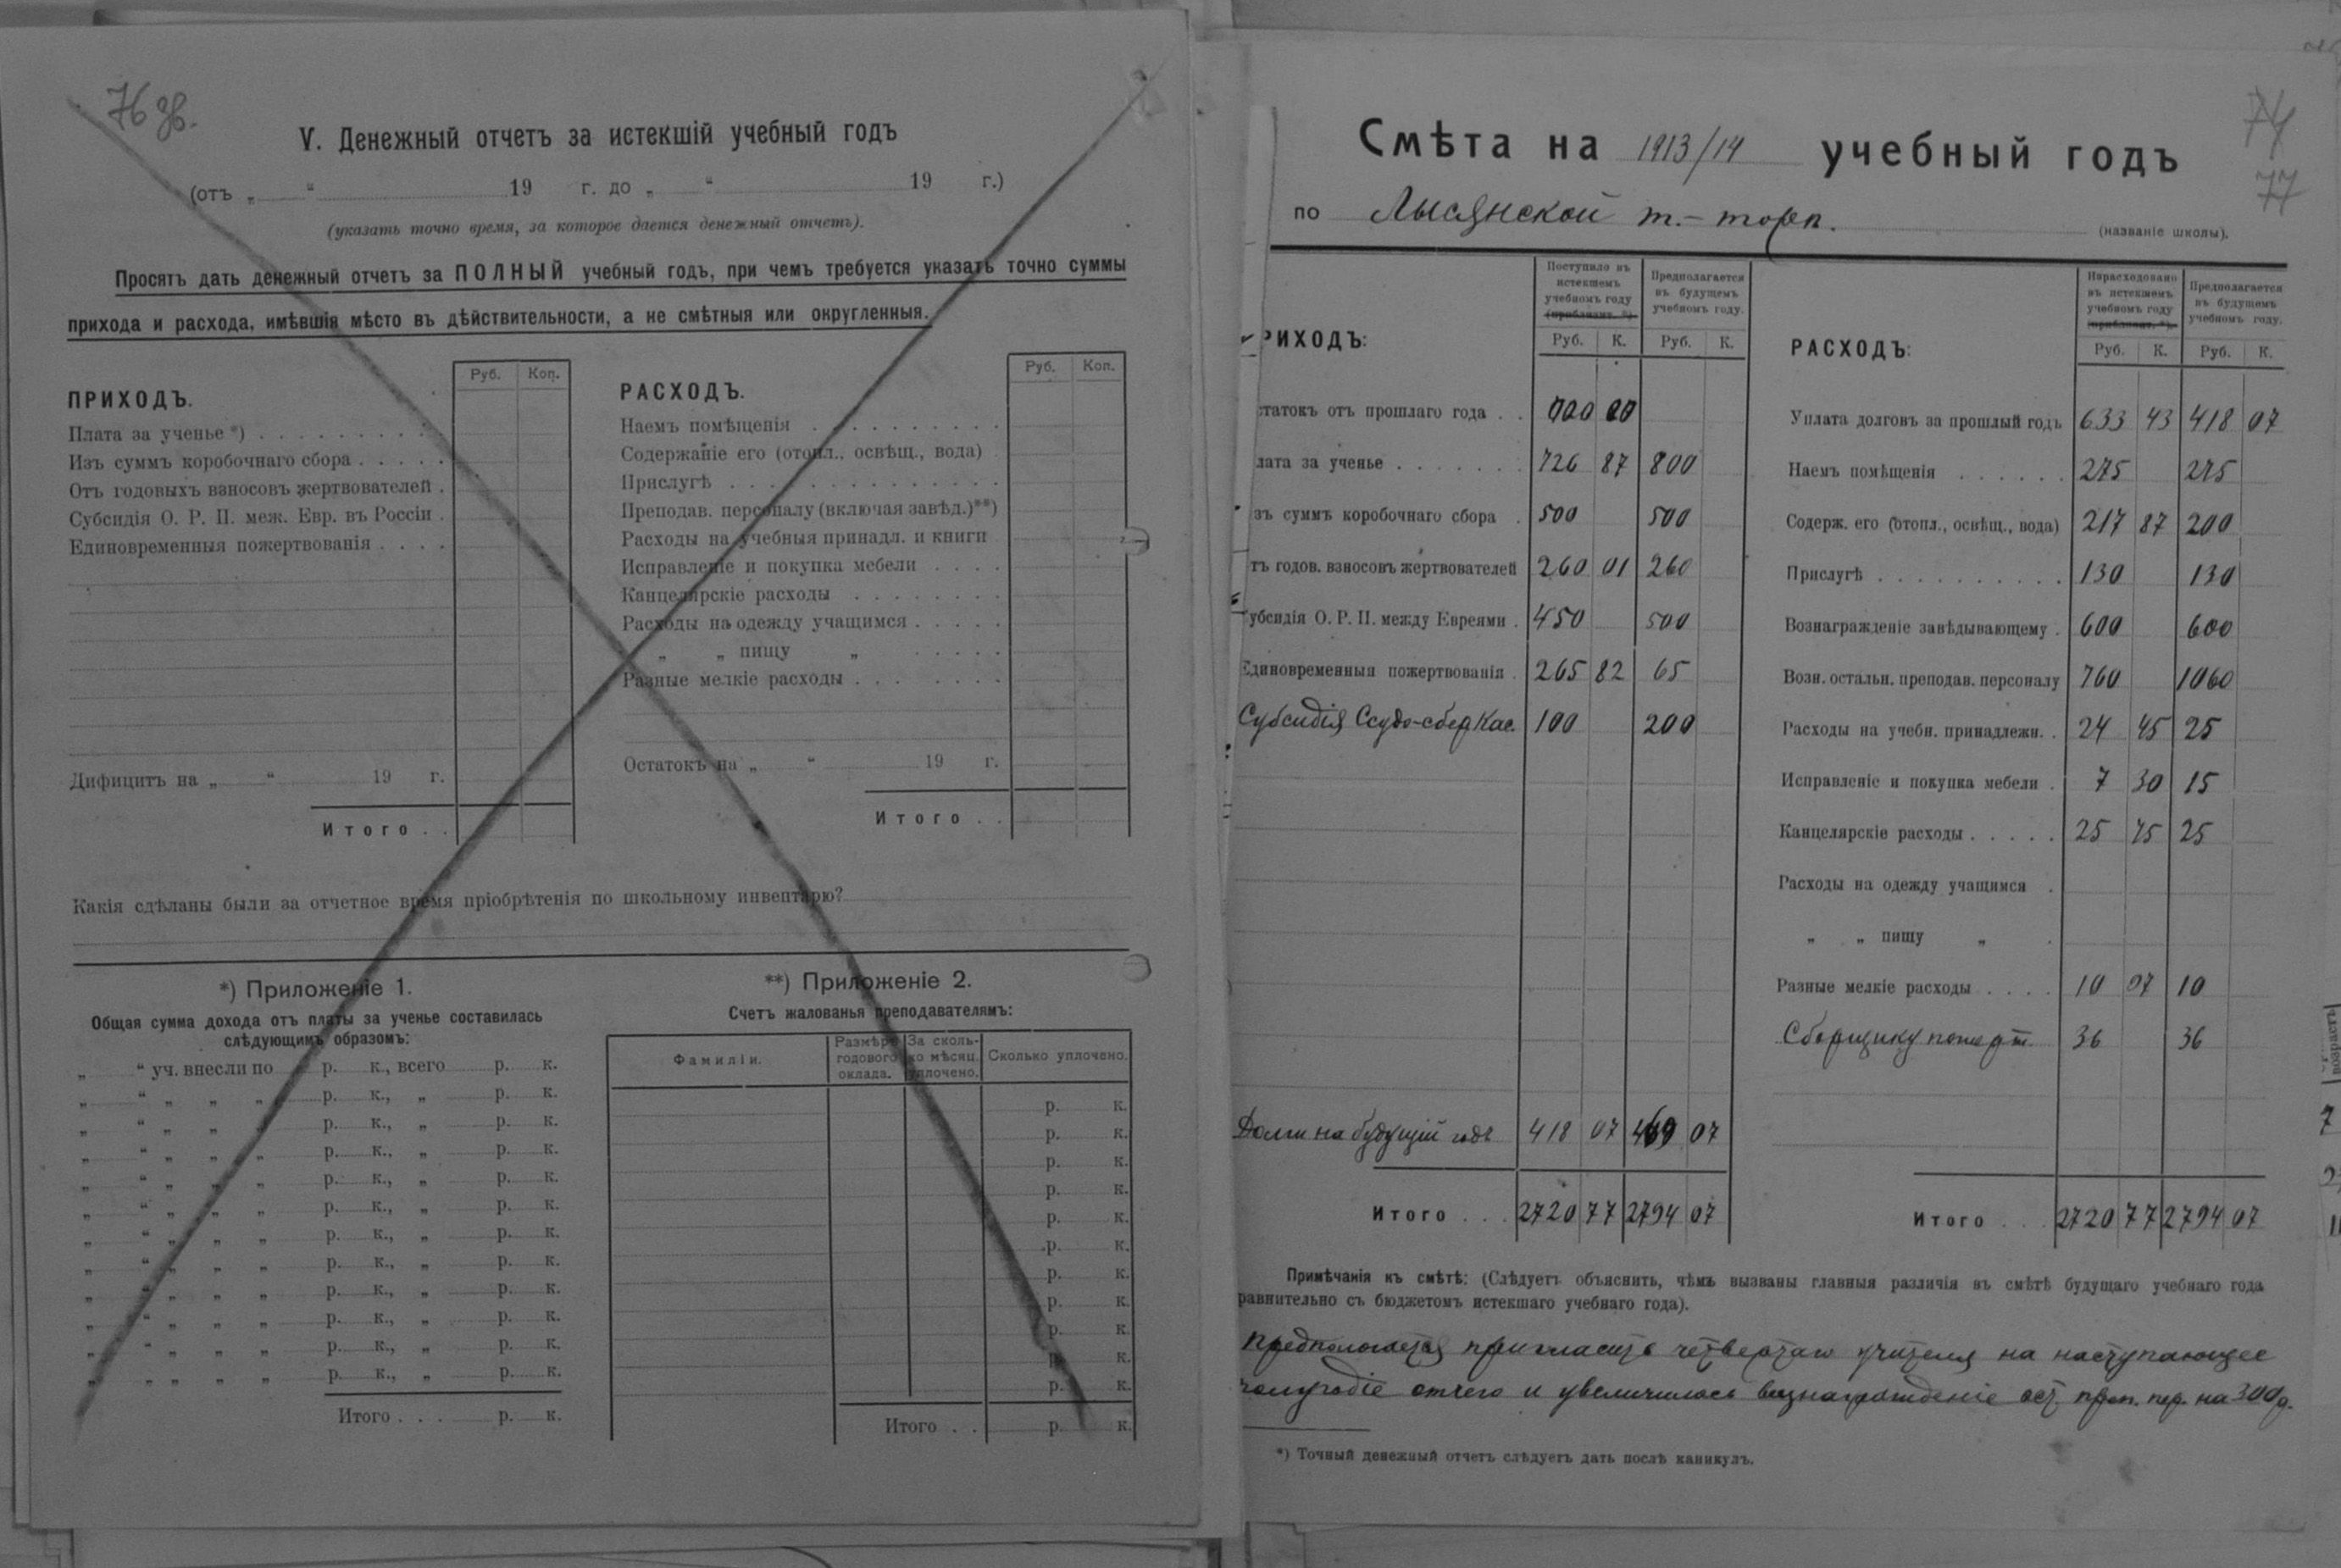 76 об.
V. Денежный отчетъ за истекшій учебный годъ
(отъ „ “ 19 г. до „ “ 19 г.)
(указать точно время, за которое дается денежный отчетъ).
Просятъ дать денежный отчетъ за ПОЛНЫЙ учебный годъ, при чемъ требуется указать точно суммы
прихода и расхода, имѣвшія мѣсто въ дѣйствительности, а не смѣтныя или округленныя.
ПРИХОДЪ. Руб. Коп.
Плата за ученье *)
Изъ суммъ коробочнаго сбора
Отъ годовыхъ взносовъ жертвователей
Субсидія О. Р. П. меж. Евр. въ Россіи
Единовременныя пожертвованія
Дифицитъ на „ “ 19 г.
Итого
РАСХОДЪ. Руб. Коп.
Наемъ помѣщенія
Содержаніе его (отопл., освѣщ., вода)
Прислугѣ
Преподав. персоналу (включая завѣд.)**)
Расходы на учебныя принадл. и книги
Исправленіе и покупка мебели
Канцелярскіе расходы
Расходы на одежду учащимся
„ „ пищу „
Разные мелкіе расходы
Остатокъ на „ “ 19 г.
Итого
Какія сдѣланы были за отчетное время пріобрѣтенія по школьному инвентарю?
*) Приложеніе 1.
Общая сумма дохода отъ платы за ученье составилась
слѣдующимъ образомъ:
„ “ уч. внесли по р. к., всего р. к.
„ “ „ „ „ р. к., „ р. к.
„ “ „ „ „ р. к., „ р. к.
„ “ „ „ „ р. к., „ р. к.
„ “ „ „ „ р. к., „ р. к.
„ “ „ „ „ р. к., „ р. к.
„ “ „ „ „ р. к., „ р. к.
„ “ „ „ „ р. к., „ р. к.
„ “ „ „ „ р. к., „ р. к.
„ “ „ „ „ р. к., „ р. к.
„ “ „ „ „ р. к., „ р. к.
„ „ „ „ „ р. к., „ р. к.
Итого . . . р. к.
**) Приложеніе 2.
Счетъ жалованья преподавателямъ:
Фамиліи. Размѣръ годового оклада. За сколько мѣсяц. уплочено. Сколько уплочено.
р. к.
р. к.
р. к.
р. к.
р. к.
р. к.
р. к.
р. к.
р. к.
р. к.
р. к.
Итого . . р. к.
74
77
Смѣта на 1913/14 учебный годъ
по Лысянской т.-торп.
(названіе школы).
РИХОДЪ:
Поступило въ истекшемъ учебномъ году (приблизит. *) Руб. К.
Предполагается въ будущемъ учебномъ году. Руб. К.
статокъ отъ прошлаго года
лата за ученье 726 87 800
зъ суммъ коробочнаго сбора 500 500
тъ годов. взносовъ жертвователей 260 01 260
убсидія О. Р. П. между Евреями 450 500
Единовременныя пожертвованія 265 82 65
Субсидія Ссудо-сбер Кас. 100 200
Долги на будущій годъ 418 07 469 07
Итого . . . 2720 77 2794 07
РАСХОДЪ:
Израсходовано въ истекшемъ учебномъ году (приблизит. *) Руб. К.
Предполагается въ будущемъ учебномъ году. Руб. К.
Уплата долговъ за прошлый годъ 633 43 418 07
Наемъ помѣщенія 275 275
Содерж. его (отопл., освѣщ., вода) 217 87 200
Прислугѣ 130 130
Вознагражденіе завѣдывающему 600 600
Возн. остальн. преподав. персоналу 760 1060
Расходы на учебн. принадлежн. 24 45 25
Исправленіе и покупка мебели 7 30 15
Канцелярскіе расходы 25 75 25
Расходы на одежду учащимся
„ „ пищу „
Разные мелкіе расходы 10 97 10
Сборщику пожерт. 36 36
Итого . . 2720 77 2794 07
Примѣчанія къ смѣтѣ: (Слѣдуетъ объяснить, чѣмъ вызваны главныя различія въ смѣтѣ будущаго учебнаго года
равнительно съ бюджетомъ истекшаго учебнаго года).
Предполагается пригласить четвертаго учителя на наступающее
полугодіе отчего и увеличилось вознагражденіе ост. преп. пер. на 300 р.
*) Точный денежный отчетъ слѣдуетъ дать послѣ каникулъ.